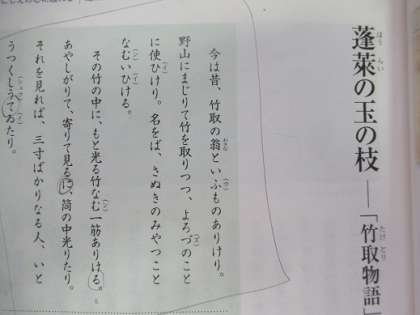 蓬萊の玉の枝――「竹取物語」
今は昔、竹取の翁といふものありけり。
野山にまじりて竹を取りつつ、よろづのこと
に使ひけり。名をば、さぬきのみやつこと
なむいひける。
その竹の中に、もと光る竹なむ一筋ありける。
あやしがりて、寄りて見るに、筒の中光りたり。
それを見れば、三寸ばかりなる人、いと
うつくしうてゐたり。